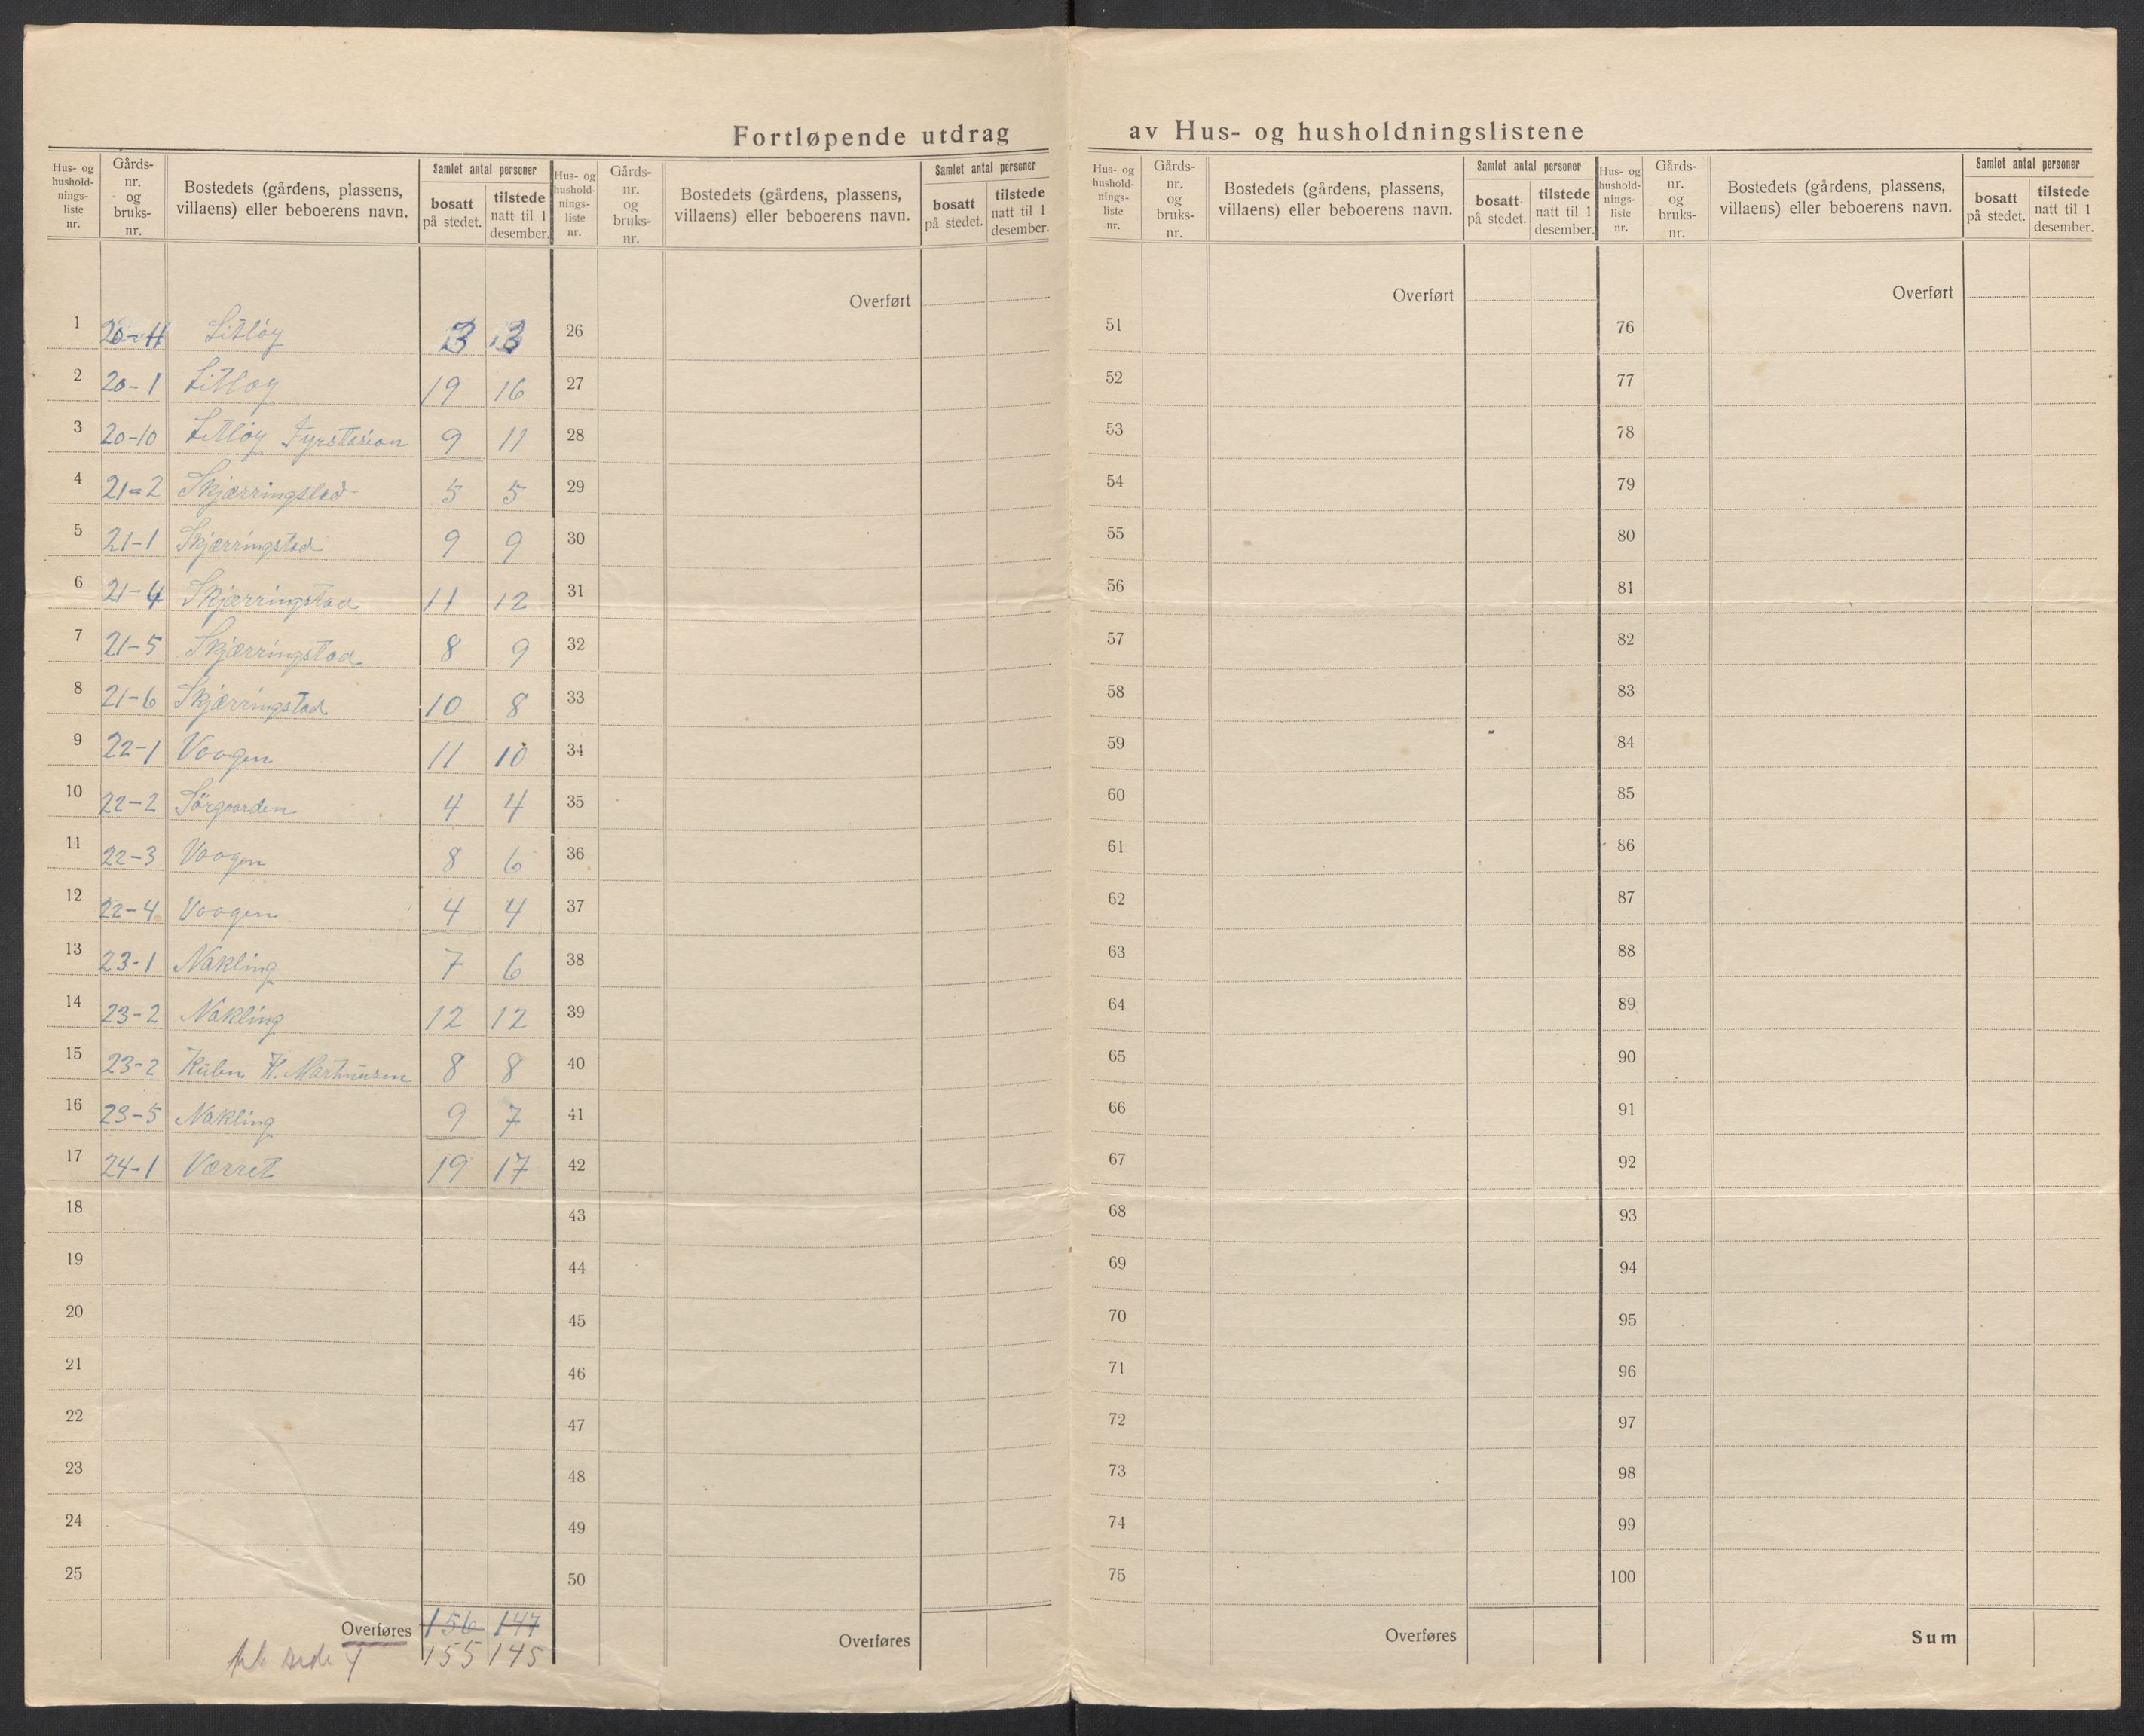 Fortløpende utdrag av Hus- og husholdningslistene
Hus- og hushold-nings-liste nr.
Gårds-nr. og bruks-nr.
Bostedets (gårdens, plassens, villaens) eller beboerens navn.
Samlet antal personer
bosatt på stedet.
tilstede natt til 1 desember.
1 20-11 Litløy 3 3
2 20-1 Litløy 19 16
3 20-10 Litløy Fyrstasion 9 11
4 21-2 Skjærringstad 5 5
5 21-1 Skjærringstad 9 9
6 21-4 Skjærringstad 11 12
7 21-5 Skjærringstad 8 9
8 21-6 Skjærringstad 10 8
9 22-1 Vaagen 11 10
10 22-2 Sørgaarden 4 4
11 22-3 Vaagen 8 6
12 22-4 Vaagen 4 4
13 23-1 Nakling 7 6
14 23-2 Nakling 12 12
15 23-2 H. Martinusen 8 8
16 23-5 Nakling 9 7
17 24-1 Værret 19 17
18
19
20
21
22
23
24
25
Overføres 156 147
side 155 145
Hus- og hushold-nings-liste nr.
Gårds-nr. og bruks-nr.
Bostedets (gårdens, plassens, villaens) eller beboerens navn.
Samlet antal personer
bosatt på stedet.
tilstede natt til 1 desember.
Overført
26
27
28
29
30
31
32
33
34
35
36
37
38
39
40
41
42
43
44
45
46
47
48
49
50
Overføres
Hus- og hushold-nings-liste nr.
Gårds-nr. og bruks-nr.
Bostedets (gårdens, plassens, villaens) eller beboerens navn.
Samlet antal personer
bosatt på stedet.
tilstede natt til 1 desember.
Overført
51
52
53
54
55
56
57
58
59
60
61
62
63
64
65
66
67
68
69
70
71
72
73
74
75
Overføres
Hus- og hushold-nings-liste nr.
Gårds-nr. og bruks-nr.
Bostedets (gårdens, plassens, villaens) eller beboerens navn.
Samlet antal personer
bosatt på stedet.
tilstede natt til 1 desember.
Overført
76
77
78
79
80
81
82
83
84
85
86
87
88
89
90
91
92
93
94
95
96
97
98
99
100
Sum